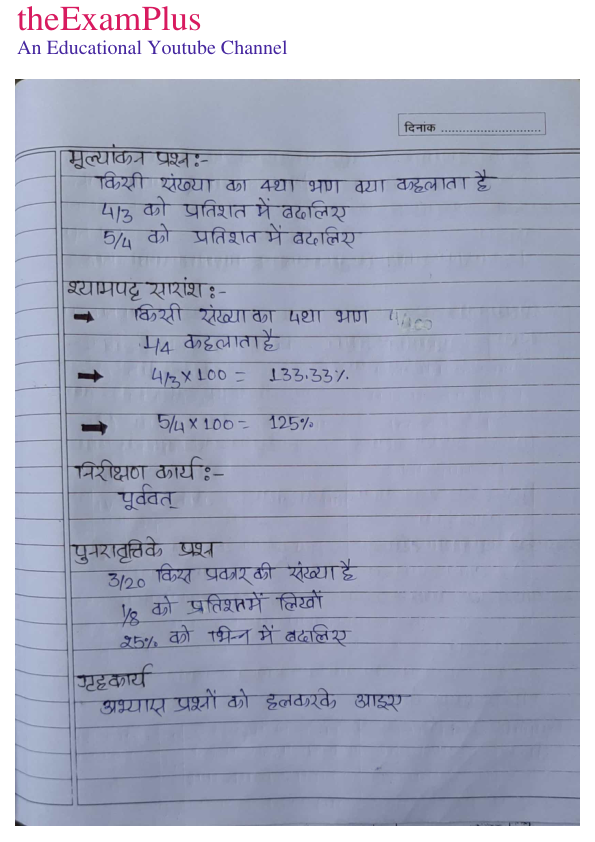 theExamPlus
An Educational Youtube Channel
दिनांक ............................
मूल्यांकन प्रश्न:-
किसी संख्या का 4था भाग क्या कहलाता है
4/3 को प्रतिशत में बदालिए
5/4 को प्रतिशत में बदालिए
श्यामपट्ट सारांश:-
➡ किसी संख्या का 4था भाग
1/4 कहलाता है
➡ 4/3 × 100 = 133.33%
➡ 5/4 × 100 = 125%
निरीक्षण कार्य:-
पूर्ववत्
पुनरावृत्तिके प्रश्न
3/20 किस प्रकार की संख्या है
1/8 को प्रतिशत में लिखों
25% को भिन्न में बदालिए
गृहकार्य
अभ्यास प्रश्नों को हलकरके आइए